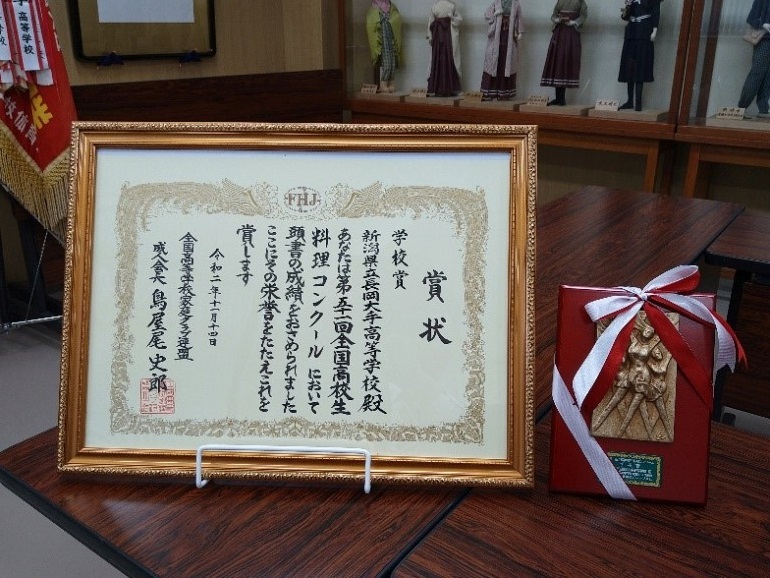 FHJ
賞状
学校賞
新潟県立長岡大手高等学校殿
あなたは第五一回全国高校生
料理コンクールにおいて
頭書の成績をおさめられました
ここにその栄誉をたたえこれを
賞します
令和二年十一月十四日
全国高等学校家庭クラブ連盟
成人会長 鳥屋尾史郎
高等学校